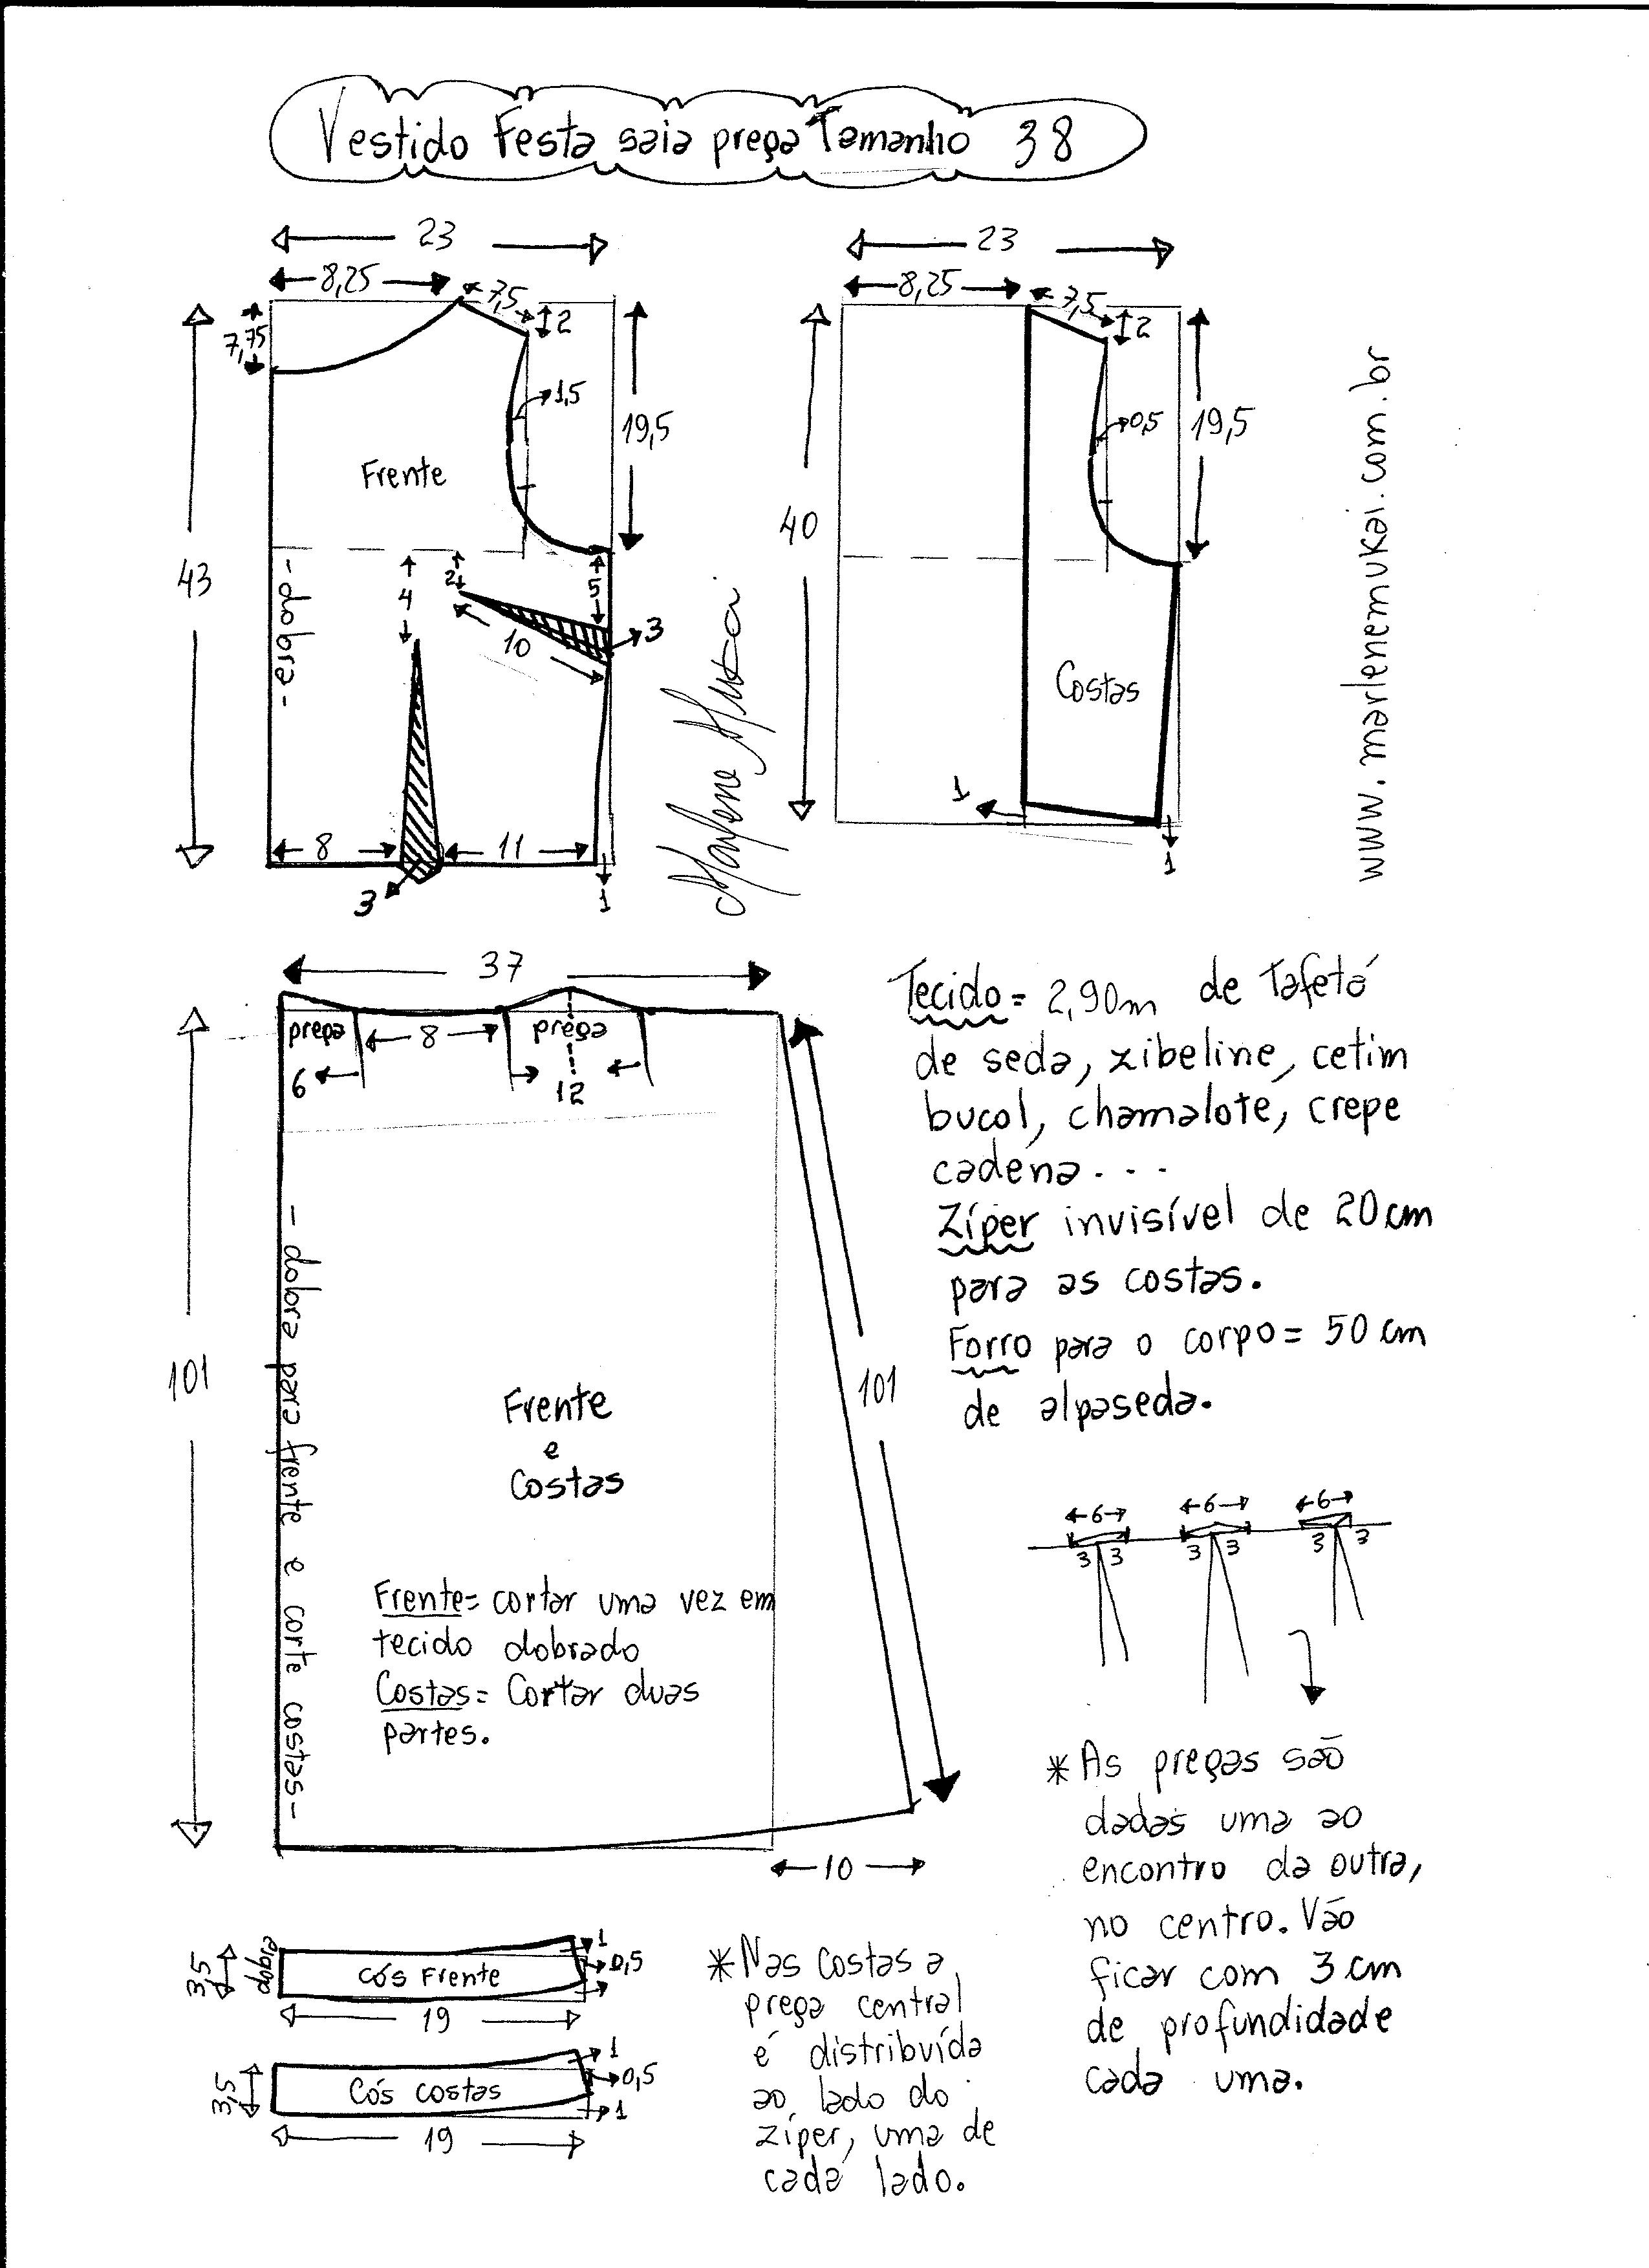 Vestido Festa saia prega Tamanho 38
23
8,25
7,5
2
7,75
1,5
19,5
Frente
43
- dobra -
4
2
5
3
10
8
11
3
1
Marlene Mukai
23
8,25
7,5
2
0,5
19,5
40
Costas
1
1
www.marlenemukai.com.br
37
prega
8
prega
6
12
101
- dobra para frente e corte costas -
101
Frente
e
Costas
Frente= cortar uma vez em
tecido dobrado
Costas= Cortar duas
partes.
10
Tecido= 2,90m de Tafetá
de seda, zibeline, cetim
bucol, chamalote, crepe
cadena...
Zíper invisível de 20cm
para as costas.
Forro para o corpo= 50 cm
de alpaseda.
6
6
6
3 3
3 3
3 3
*As pregas são
dadas uma ao
encontro da outra,
no centro. Vão
ficar com 3 cm
de profundidade
cada uma.
3,5
dobra
Cós Frente
1
0,5
19
3,5
Cós costas
1
0,5
1
19
*Nas costas a
prega central
é distribuída
ao lado do
zíper, uma de
cada lado.